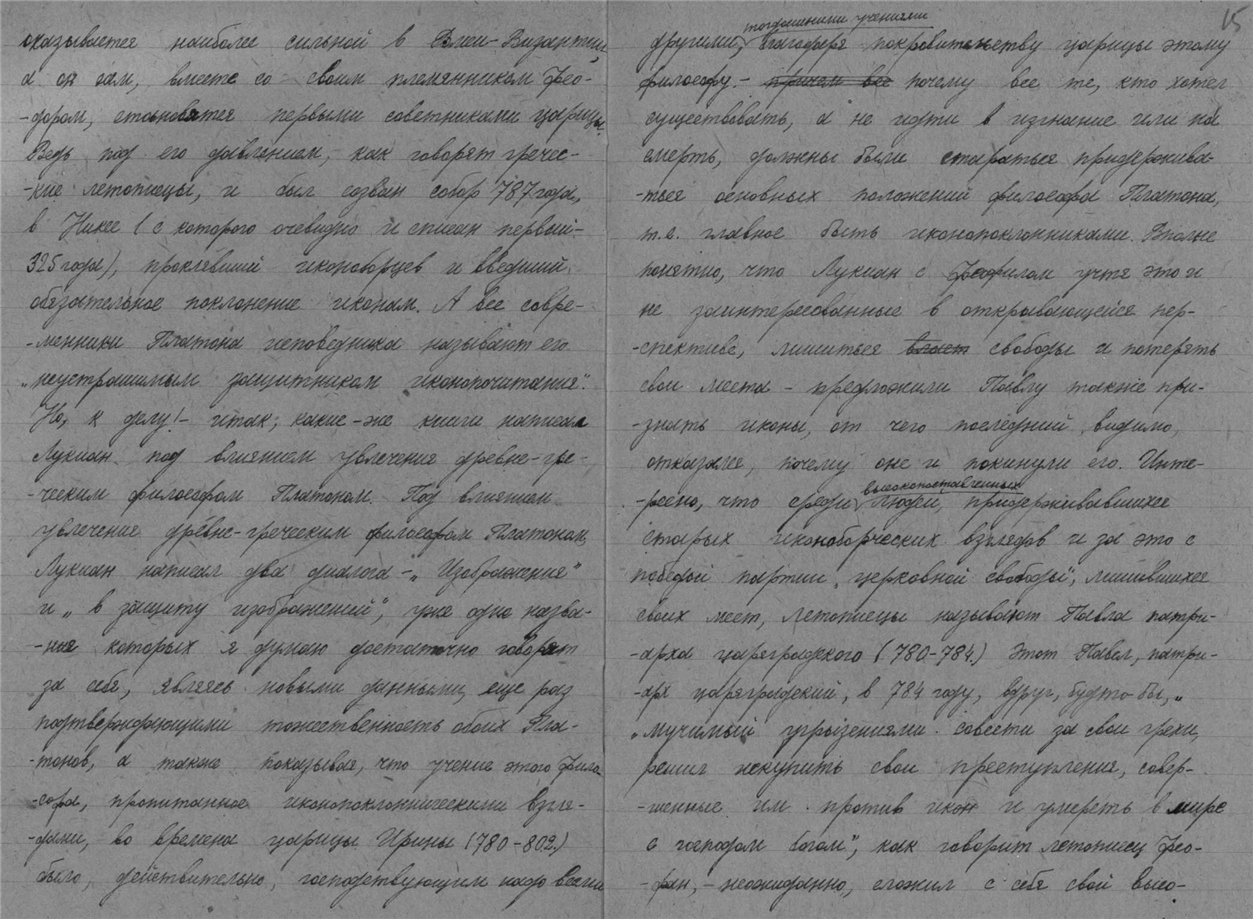 оказывается наиболее сильной в Византии
а он сам, вместе со своим племянником Фео-
-дором, становятся первыми советниками царицы.
Ведь под его давлением, как говорят гречес-
-кие летописцы, и был созван собор 787 года,
в Никее (с которого очевидно и списан первый-
325 года), проклявший иконоборцев и введший
обязательное поклонение иконам. А все совре-
-менники Платона исповедника называют его
„неустрашимым защитником иконопочитания".
Но, к делу! – итак, какие-же книги написал
Лукиан под влиянием увлечения древне-гре-
-ческим философом Платоном. Под влиянием
увлечения древне-греческим философом Платоном,
Лукиан написал два диалога – „Изображения"
и „в защиту изображений", уже одно назва-
-ние которых я думаю достаточно говорят
за себя, являясь новыми данными, еще раз
подтверждающими тожественность обоих Пла-
-тонов, а также показывая, что учение этого фило-
-софа, пропитанное иконопоклонническими взгля-
-дами, во времена царицы Ирины (780-802.)
было, действительно, господствующим надо всеми
15
тогдашними учениями
другими, благодаря покровительству царицы этому
философу. – причем все почему все те, кто хотел
существовать, а не идти в изгнание или на
смерть, должны были стараться придержива-
-ться основных положений философа Платона,
т.е. главное быть иконопоклонниками. Вполне
понятно, что Лукиан с Феофилом учтя это и
не заинтересованные в открывающейся пер-
-спективе, лишиться власт свободы и потерять
свои места – предложили Павлу также при-
-знать иконы, от чего последний, видимо,
отказался, почему они и покинули его. Инте-
высокопоставленных
-ресно, что среди людей, придерживавшихся
старых иконоборческих взглядов и за это с
победой партии „церковной свободы", лишившихся
своих мест, летописцы называют Павла патри-
-арха цареградского (780-784.) Этот Павел, патри-
-арх цареградский, в 784 году, вдруг, будто-бы, „
„мучимый угрызениями совести за свои грехи,
решил искупить свои преступления, совер-
-шенные им против икон и умереть в мире
с господом богом", как говорит летописец Фео-
-фан, – неожиданно, сложил с себя свой высо-